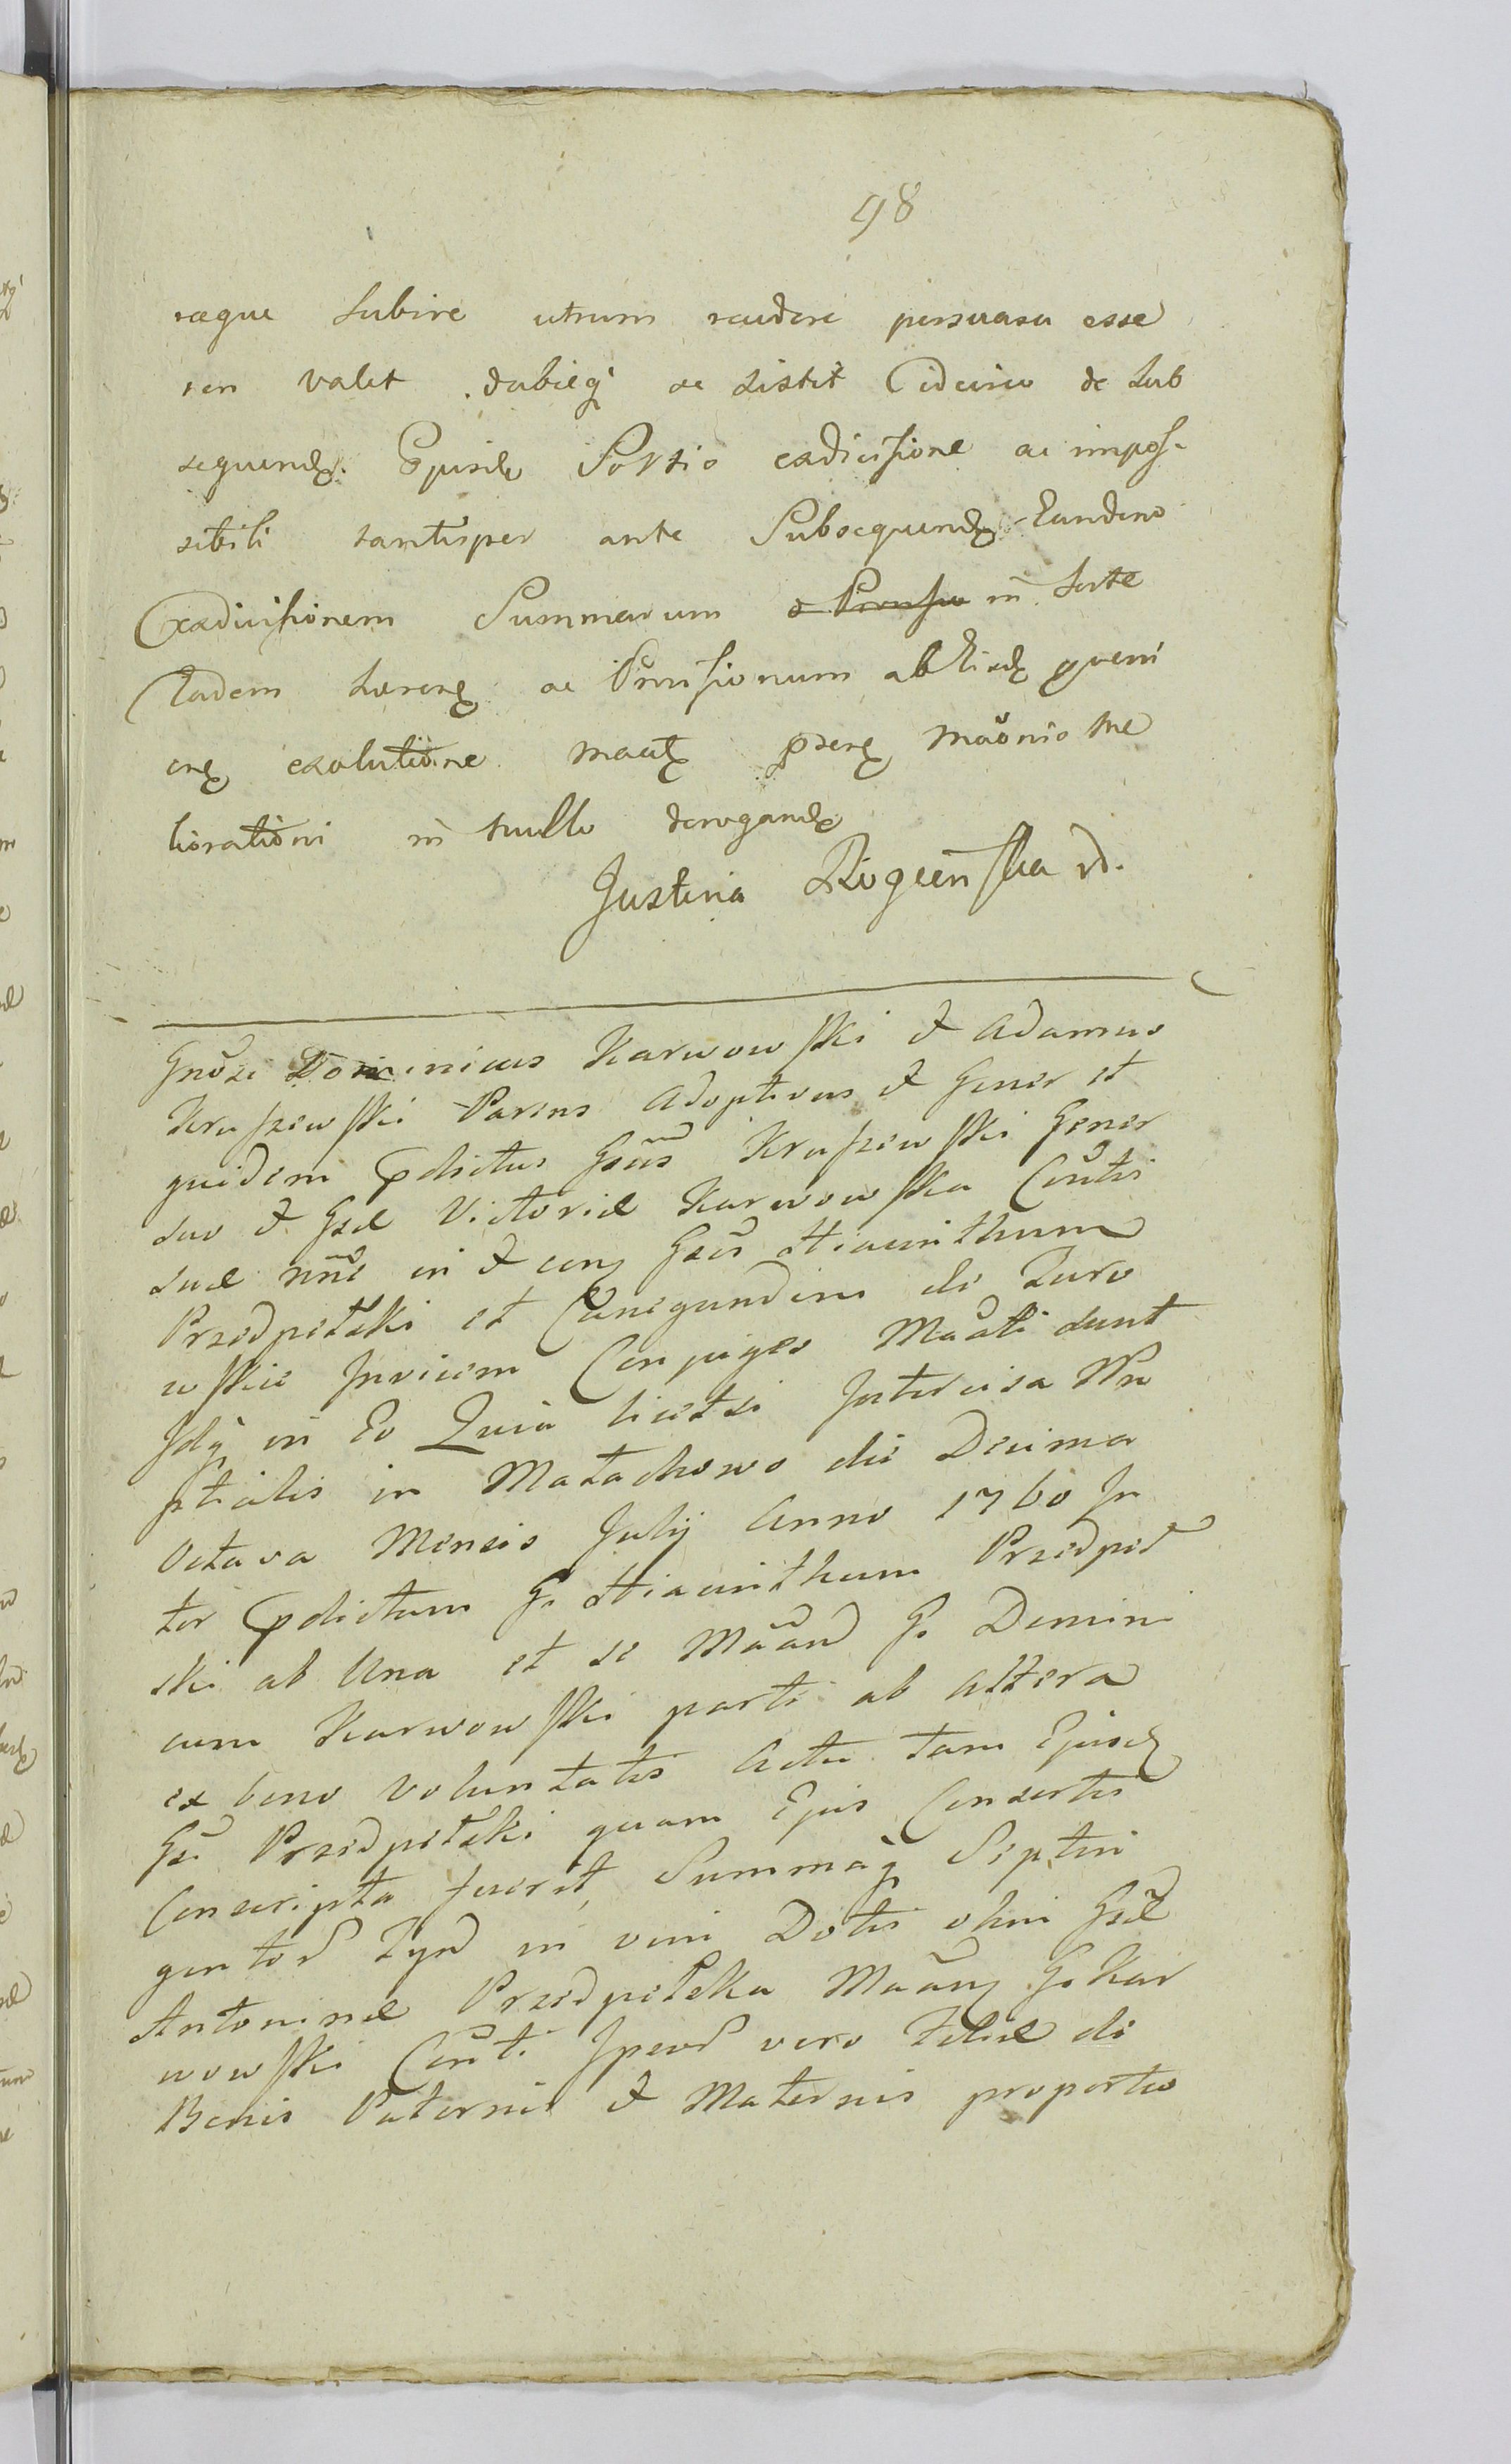 98
raque subire utrum recidere persuasu esse
non valet. dabitq' ac sistet Cidcirco de sub
sequend. Ejusd. Sortis exdivisione ac impos-
sibili tantisper ante Subsequend. Eandem
Exdivisionem Summarum in sorte
Eadem ac Provisionum ab Eisd. preveni
end. exolutione maat. manio me
liorationi in nullo derogand.
Justina
Gnosi Dominicus Karwowski & Adamus
Kruszewski Parens Adoptivus & Gener et
quidem pdictus Gsus Kruszewski Gener
suo & Gsae Victoriae Karwowska Contis
suae nne in & con Gsu Hiacinthum
Przedpełski et Cunegundim de Zuro
wskie Invicem Conjuges Maati sunt
Idq' in Eo Quia licet si Intercisa Nu
ptialis in Małachowo die Decima
Octava Mensis Julij Anno 1760 In
ter pdictum G. Hiacinthum Przedpeł
ski ab Una et se Maand G. Domini
cum Karwowski parti ab altera
ex bono voluntatis actu tam Ejusd.
Gsi Przedpełski quam Ejus Consortis
Conscripta fuerit, Summaq' Septin
gentor Tynf in vim Dotis olim Gsae
Antoninae Przedpełska Maan G. Kar
wowski Conti vero Filiae de
Bonis Paternis & Maternis proportio